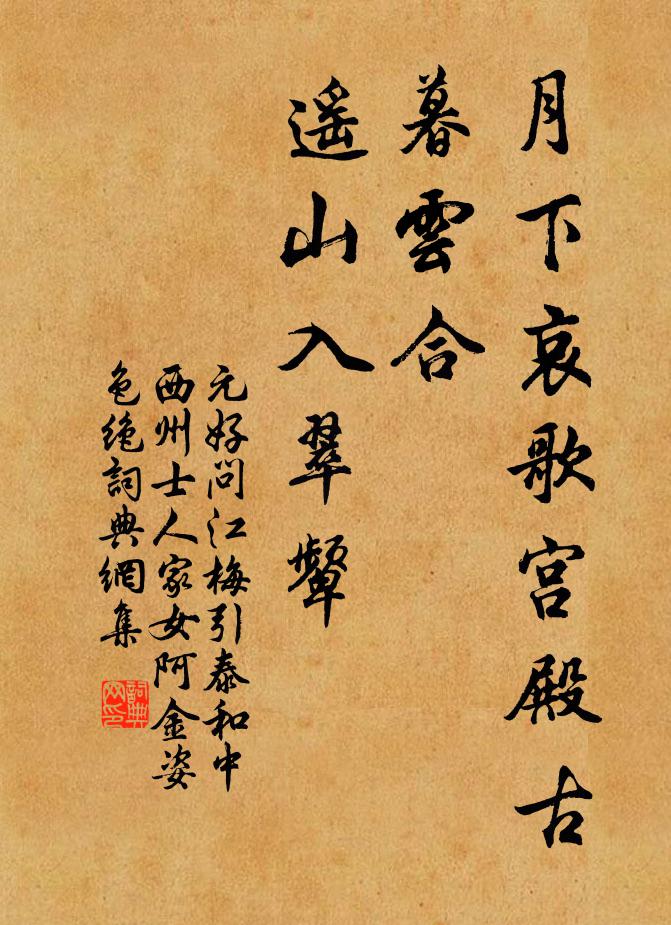 月下哀歌宫殿古
暮雲合
遥山入翠顰
元好问江梅引泰和中
西州士人家女阿金姿
色绝詞典網集
詞典网印